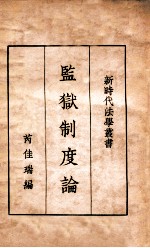 新時代法學叢書
監獄制度論
芮佳瑞編